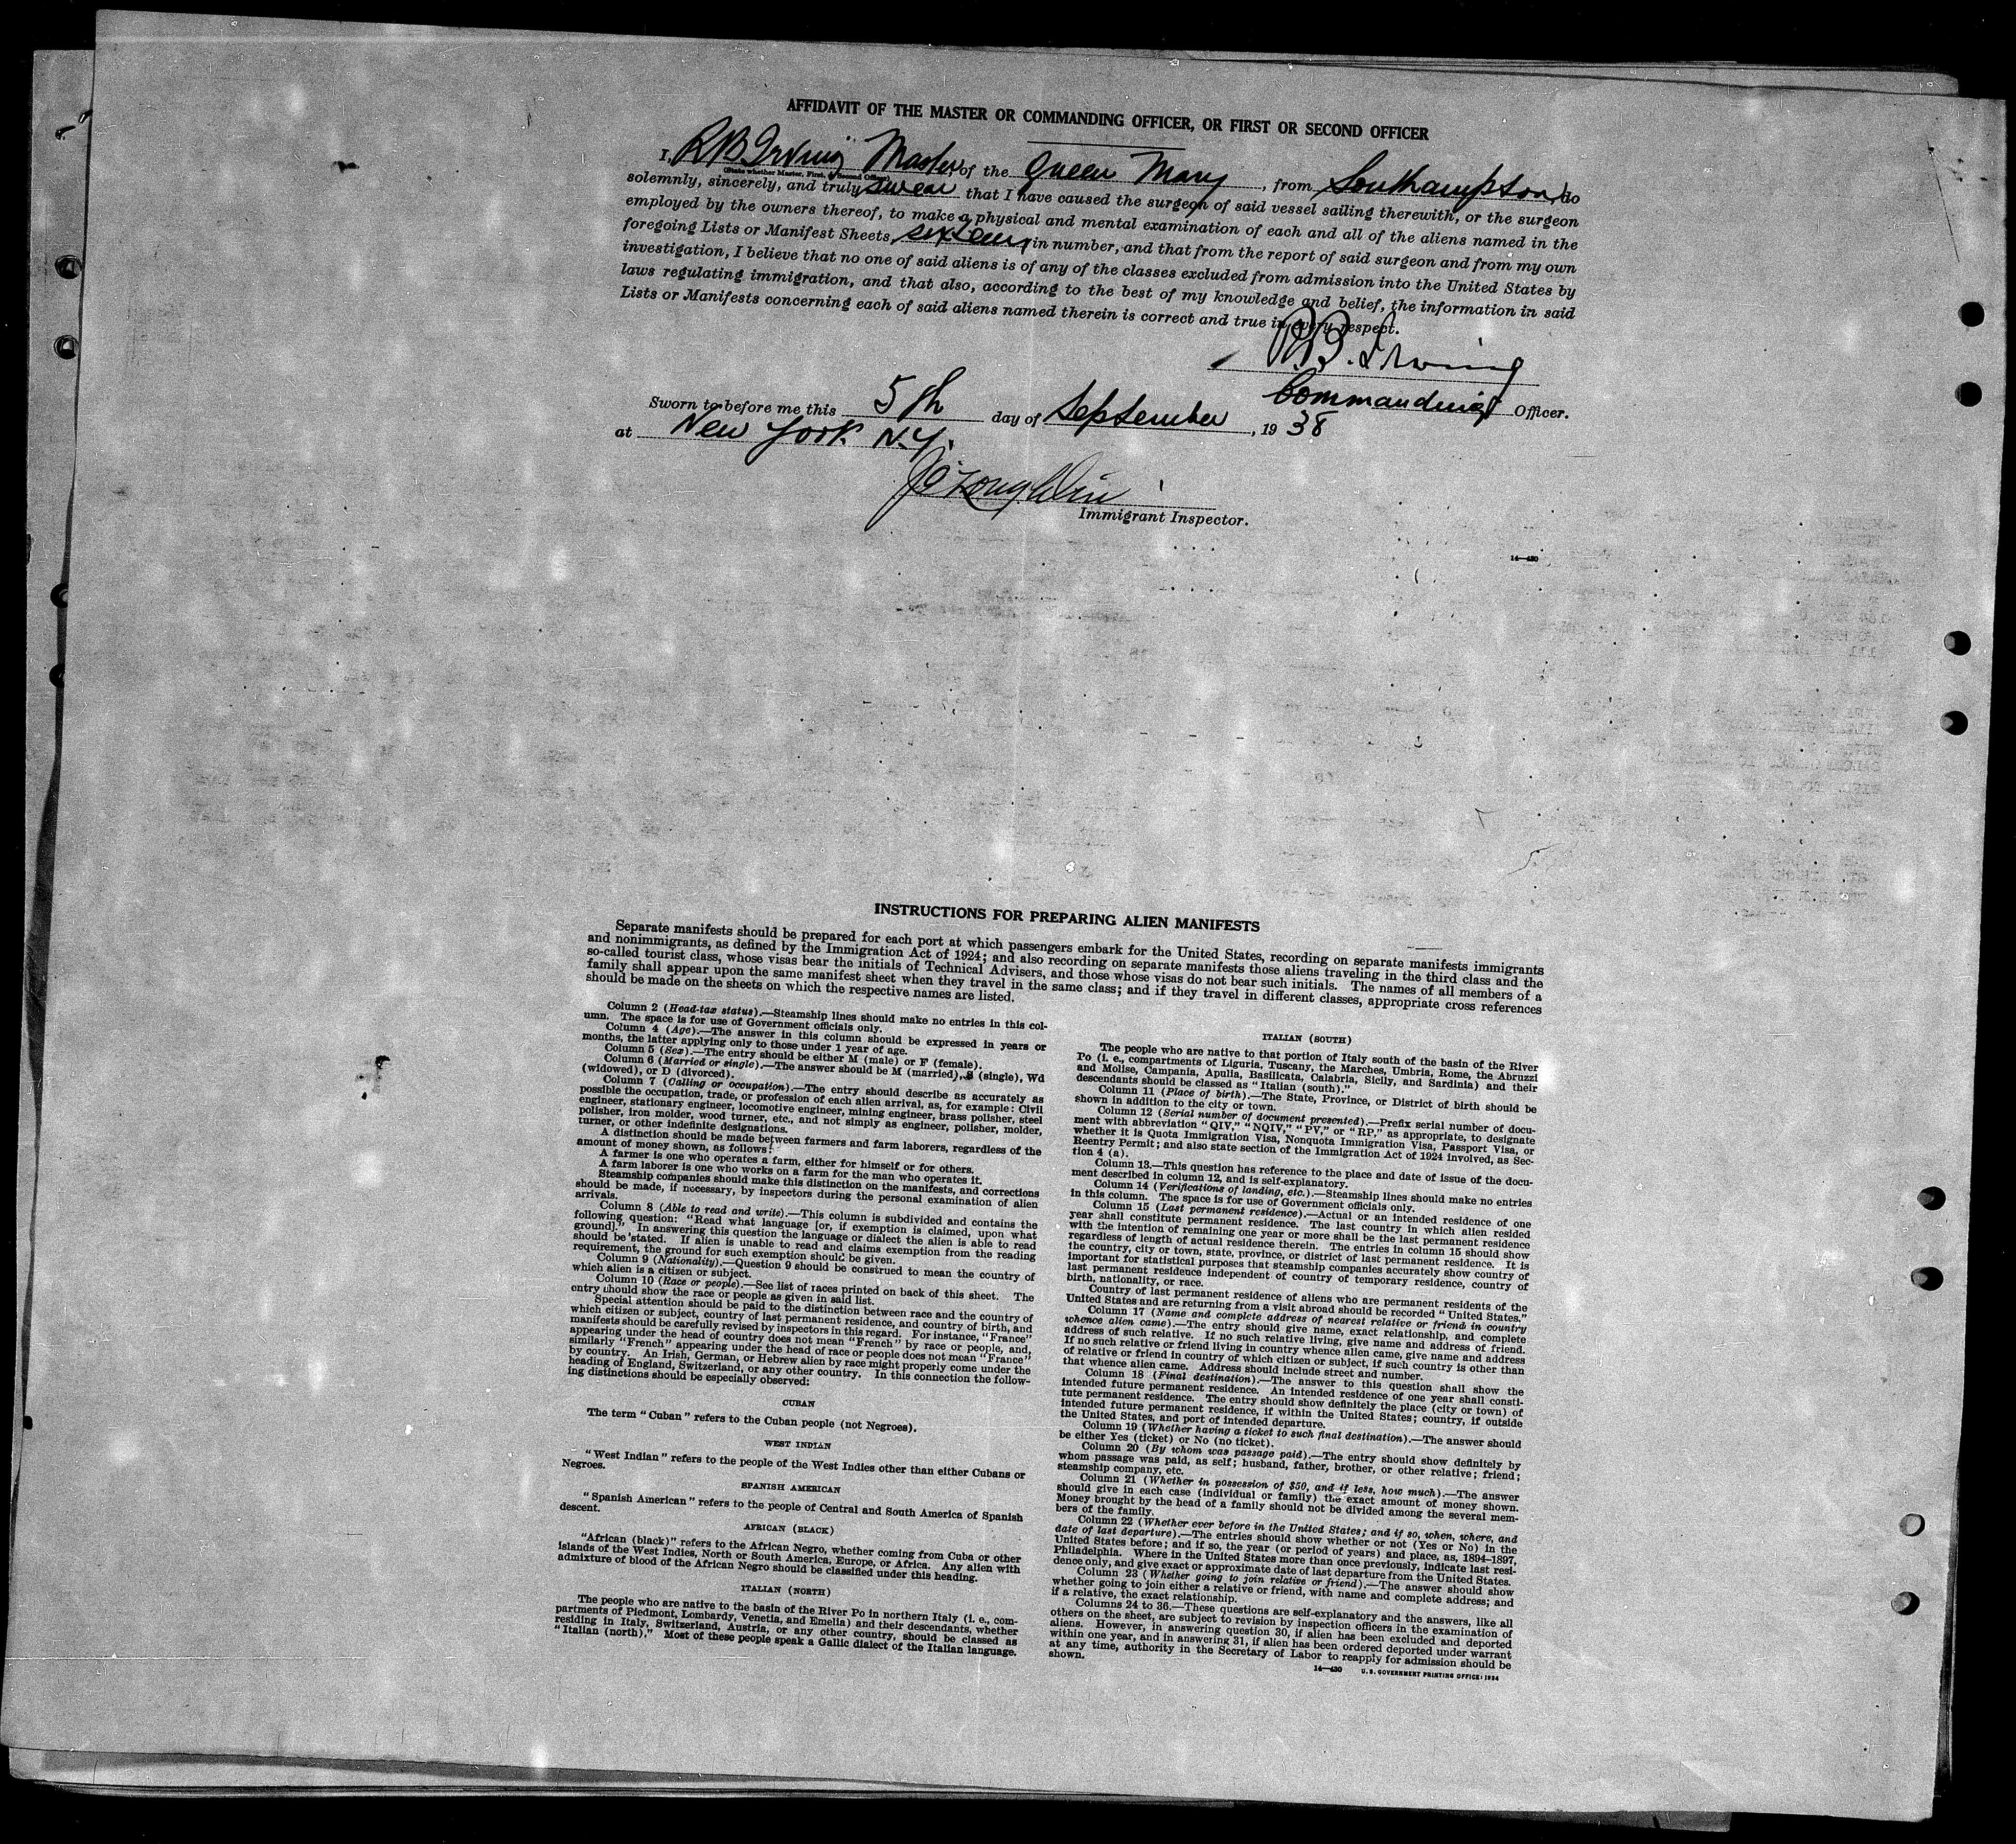 AFFIDAVIT OF THE MASTER OR COMMANDING OFFICER, OR FIRST OR SECOND OFFICER
I, R B Irving Master, of the Queen Mary, from Southampton, do
(State whether Master, First, or Second Officer)
solemnly, sincerely, and truly swear that I have caused the surgeon of said vessel sailing therewith, or the surgeon
employed by the owners thereof, to make a physical and mental examination of each and all of the aliens named in the
foregoing Lists or Manifest Sheets, sixteen in number, and that from the report of said surgeon and from my own
investigation, I believe that no one of said aliens is of any of the classes excluded from admission into the United States by
laws regulating immigration, and that also, according to the best of my knowledge and belief, the information in said
Lists or Manifests concerning each of said aliens named therein is correct and true in every respect.
R.B. Irving
Commanding Officer.
Sworn to before me this 5th day of September, 1938
at New York N.Y.
Immigrant Inspector.
14—430
INSTRUCTIONS FOR PREPARING ALIEN MANIFESTS
Separate manifests should be prepared for each port at which passengers embark for the United States, recording on separate manifests immigrants
and nonimmigrants, as defined by the Immigration Act of 1924; and also recording on separate manifests those aliens traveling in the third class and the
so-called tourist class, whose visas bear the initials of Technical Advisers, and those whose visas do not bear such initials. The names of all members of a
family shall appear upon the same manifest sheet when they travel in the same class; and if they travel in different classes, appropriate cross references
should be made on the sheets on which the respective names are listed.
Column 2 (Head-tax status).—Steamship lines should make no entries in this col-
umn. The space is for use of Government officials only.
Column 4 (Age).—The answer in this column should be expressed in years or
months, the latter applying only to those under 1 year of age.
Column 5 (Sex).—The entry should be either M (male) or F (female).
Column 6 (Married or single).—The answer should be M (married), S (single), Wd
(widowed), or D (divorced).
Column 7 (Calling or occupation).—The entry should describe as accurately as
possible the occupation, trade, or profession of each alien arrival, as, for example: Civil
engineer, stationary engineer, locomotive engineer, mining engineer, brass polisher, steel
polisher, iron molder, wood turner, etc., and not simply as engineer, polisher, molder,
turner, or other indefinite designations.
A distinction should be made between farmers and farm laborers, regardless of the
amount of money shown, as follows:
A farmer is one who operates a farm, either for himself or for others.
A farm laborer is one who works on a farm for the man who operates it.
Steamship companies should make this distinction on the manifests, and corrections
should be made, if necessary, by inspectors during the personal examination of alien
arrivals.
Column 8 (Able to read and write).—This column is subdivided and contains the
following question: "Read what language [or, if exemption is claimed, upon what
ground]." In answering this question the language or dialect the alien is able to read
should be stated. If alien is unable to read and claims exemption from the reading
requirement, the ground for such exemption should be given.
Column 9 (Nationality).—Question 9 should be construed to mean the country of
which alien is a citizen or subject.
Column 10 (Race or people).—See list of races printed on back of this sheet. The
entry should show the race or people as given in said list.
Special attention should be paid to the distinction between race and the country of
which citizen or subject, country of last permanent residence, and country of birth, and
manifests should be carefully revised by inspectors in this regard. For instance, "France"
appearing under the head of country does not mean "French" by race or people, and,
similarly "French" appearing under the head of race or people does not mean "France"
by country. An Irish, German, or Hebrew alien by race might properly come under the
heading of England, Switzerland, or any other country. In this connection the follow-
ing distinctions should be especially observed:
CUBAN
The term "Cuban" refers to the Cuban people (not Negroes).
WEST INDIAN
"West Indian" refers to the people of the West Indies other than either Cubans or
Negroes.
SPANISH AMERICAN
"Spanish American" refers to the people of Central and South America of Spanish
descent.
AFRICAN (BLACK)
"African (black)" refers to the African Negro, whether coming from Cuba or other
islands of the West Indies, North or South America, Europe, or Africa. Any alien with
admixture of blood of the African Negro should be classified under this heading.
ITALIAN (NORTH)
The people who are native to the basin of the River Po in northern Italy (i. e., com-
partments of Piedmont, Lombardy, Venetia, and Emelia) and their descendants, whether
residing in Italy, Switzerland, Austria, or any other country, should be classed as
"Italian (north)." Most of these people speak a Gallic dialect of the Italian language.
ITALIAN (SOUTH)
The people who are native to that portion of Italy south of the basin of the River
Po (i. e., compartments of Liguria, Tuscany, the Marches, Umbria, Rome, the Abruzzi
and Molise, Campania, Apulia, Basilicata, Calabria, Sicily, and Sardinia) and their
descendants should be classed as "Italian (south)."
Column 11 (Place of birth).—The State, Province, or District of birth should be
shown in addition to the city or town.
Column 12 (Serial number of document presented).—Prefix serial number of docu-
ment with abbreviation "QIV," "NQIV," "PV," or "RP," as appropriate, to designate
whether it is Quota Immigration Visa, Nonquota Immigration Visa, Passport Visa, or
Reentry Permit; and also state section of the Immigration Act of 1924 involved, as Sec-
tion 4 (a).
Column 13.—This question has reference to the place and date of issue of the docu-
ment described in column 12, and is self-explanatory.
Column 14 (Verifications of landing, etc.).—Steamship lines should make no entries
in this column. The space is for use of Government officials only.
Column 15 (Last permanent residence).—Actual or an intended residence of one
year shall constitute permanent residence. The last country in which alien resided
with the intention of remaining one year or more shall be the last permanent residence
regardless of length of actual residence therein. The entries in column 15 should show
the country, city or town, state, province, or district of last permanent residence. It is
important for statistical purposes that steamship companies accurately show country of
last permanent residence independent of country of temporary residence, country of
birth, nationality, or race.
Country of last permanent residence of aliens who are permanent residents of the
United States and are returning from a visit abroad should be recorded "United States."
Column 17 (Name and complete address of nearest relative or friend in country
whence alien came).—The entry should give name, exact relationship, and complete
address of such relative. If no such relative living, give name and address of friend.
If no such relative or friend living in country whence alien came, give name and address
of relative or friend in country of which citizen or subject, if such country is other than
that whence alien came. Address should include street and number.
Column 18 (Final destination).—The answer to this question shall show the
intended future permanent residence. An intended residence of one year shall consti-
tute permanent residence. The entry should show definitely the place (city or town) of
intended future permanent residence, if within the United States; country, if outside
the United States, and port of intended departure.
Column 19 (Whether having a ticket to such final destination).—The answer should
be either Yes (ticket) or No (no ticket).
Column 20 (By whom was passage paid).—The entry should show definitely by
whom passage was paid, as self; husband, father, brother, or other relative; friend;
steamship company, etc.
Column 21 (Whether in possession of $50, and if less, how much).—The answer
should give in each case (individual or family) the exact amount of money shown.
Money brought by the head of a family should not be divided among the several mem-
bers of the family.
Column 22 (Whether ever before in the United States; and if so, when, where, and
date of last departure).—The entries should show whether or not (Yes or No) in the
United States before; and if so, the year (or period of years) and place, as, 1894-1897,
Philadelphia. Where in the United States more than once previously, indicate last resi-
dence only, and give exact or approximate date of last departure from the United States.
Column 23 (Whether going to join relative or friend).—The answer should show
whether going to join either a relative or friend, with name and complete address; and
if a relative, the exact relationship.
Columns 24 to 36.—These questions are self-explanatory and the answers, like all
others on the sheet, are subject to revision by inspection officers in the examination of
aliens. However, in answering question 30, if alien has been excluded and deported
within one year, and in answering 31, if alien has been ordered deported under warrant
at any time, authority in the Secretary of Labor to reapply for admission should be
shown.
14—430 U. S. GOVERNMENT PRINTING OFFICE: 1934